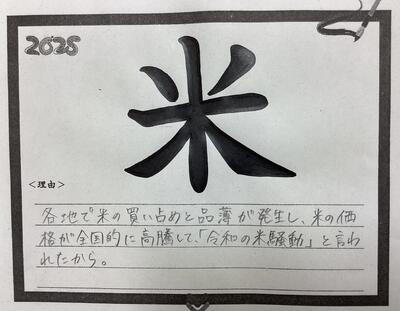 2025
米
<理由>
各地で米の買い占めと品薄が発生し、米の価
格が全国的に高騰して、「令和の米騒動」と言わ
れたから。